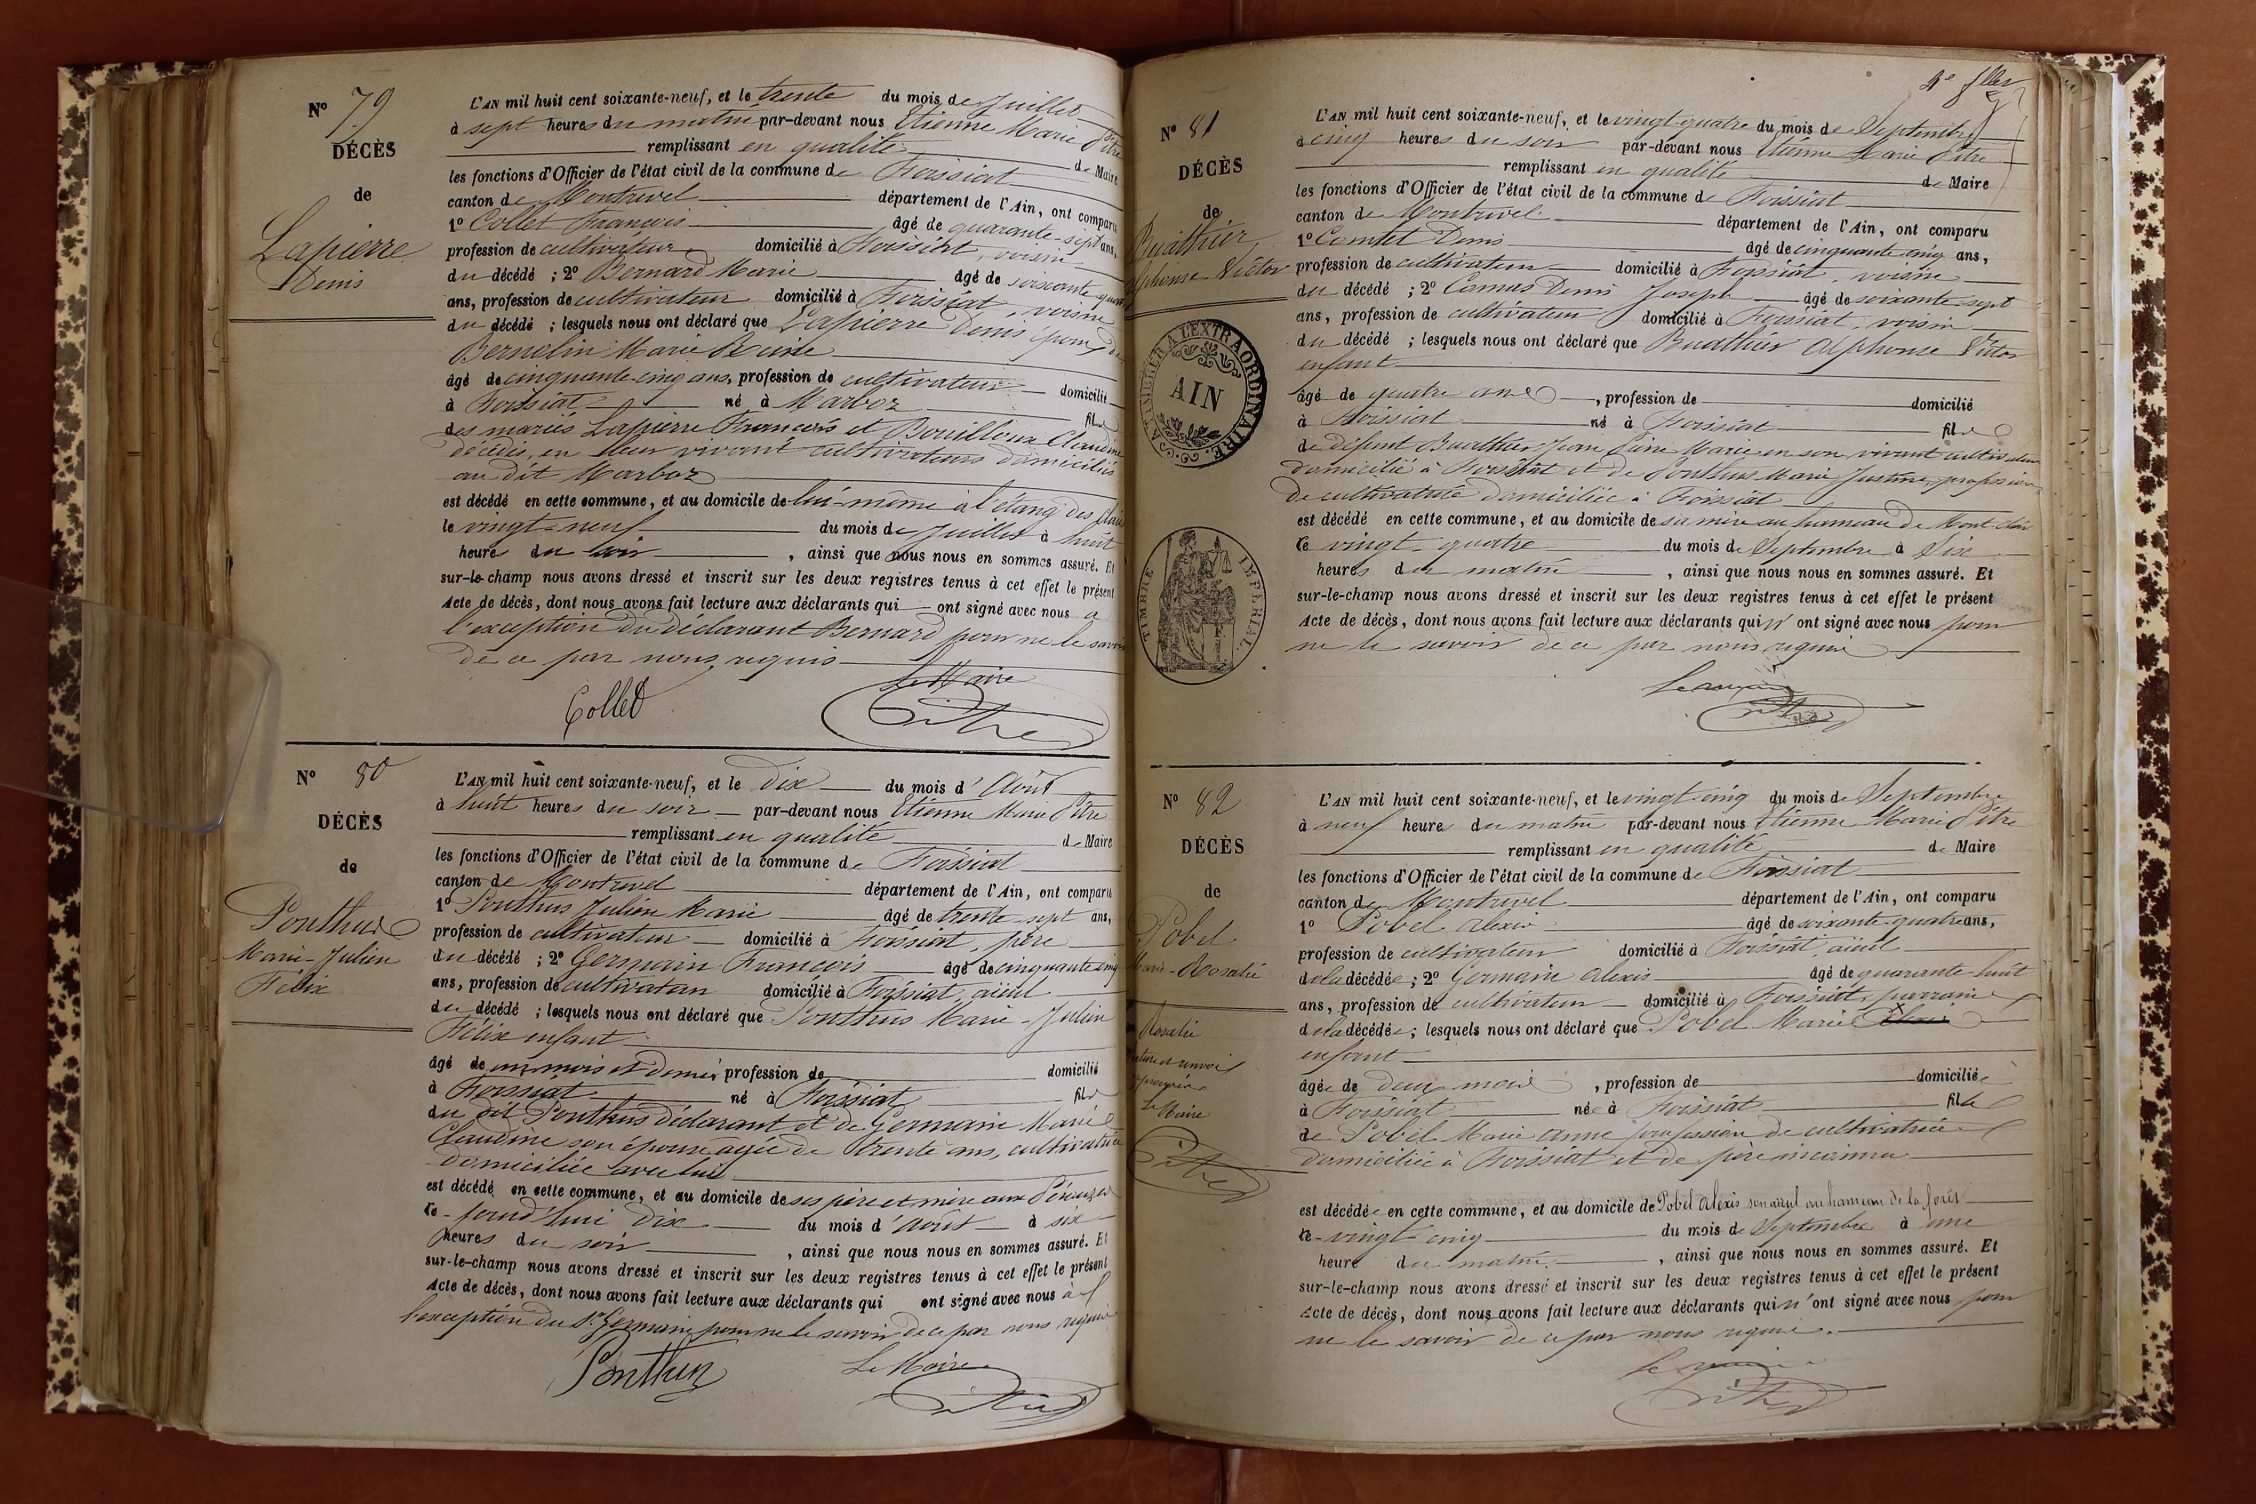 N° 79
DÉCÈS
de
Lapierre
Denis
L'AN mil huit cent soixante-neuf, et le trente du mois de Juillet
à sept heures du matin par-devant nous Etienne Marie Pitre
remplissant en qualité de Maire
les fonctions d'Officier de l'état civil de la commune de Foissiat
canton de Montrevel département de l'Ain, ont comparu
1° Collet François âgé de quarante-sept ans,
profession de cultivateur domicilié à Foissiat, voisin
du décédé ; 2° Bernard Marie âgé de soixante quatre
ans, profession de cultivateur domicilié à Foissiat, voisin
du décédé ; lesquels nous ont déclaré que Lapierre Denis époux de
Bernelin Marie Reine
âgé de cinquante-cinq ans, profession de cultivateur domicilié
à Foissiat né à Marboz fils
des mariés Lapierre François et Bouilloux Claudine
décédés, en leur vivant cultivateurs domiciliés
au dit Marboz
est décédé en cette commune, et au domicile de lui-même à l'étang des
le vingt-neuf du mois de Juillet à huit
heures du soir, ainsi que nous nous en sommes assuré. Et
sur-le-champ nous avons dressé et inscrit sur les deux registres tenus à cet effet le présent
Acte de décès, dont nous avons fait lecture aux déclarants qui ont signé avec nous à
l'exception du déclarant Bernard pour ne le savoir
de ce par nous requis
Le Maire
Collet Pitre
N° 80
DÉCÈS
de
Ponthus
Marie-Julien
Félix
L'AN mil huit cent soixante-neuf, et le dix du mois d'Août
à huit heures du soir par-devant nous Etienne Marie Pitre
remplissant en qualité de Maire
les fonctions d'Officier de l'état civil de la commune de Foissiat
canton de Montrevel département de l'Ain, ont comparu
1° Ponthus Julien Marie âgé de trente-sept ans,
profession de cultivateur domicilié à Foissiat, père
du décédé ; 2° Germain François âgé de cinquante cinq
ans, profession de cultivateur domicilié à Foissiat, aïeul
du décédé ; lesquels nous ont déclaré que Ponthus Marie-Julien
Félix enfant
âgé de un mois et demi profession de domicilié
à Foissiat né à Foissiat fils
du dit Ponthus déclarant et de Germain Marie
Claudine son épouse agée de trente ans, cultivatrice
domiciliée avec lui
est décédé en cette commune, et au domicile de ses père et mère aux
le jourd'hui dix du mois d'Août à six
heures du soir, ainsi que nous nous en sommes assuré. Et
sur-le-champ nous avons dressé et inscrit sur les deux registres tenus à cet effet le présent
Acte de décès, dont nous avons fait lecture aux déclarants qui ont signé avec nous à
l'exception du Sr Germain pour ne le savoir de ce par nous requis
Ponthus Le Maire
Pitre
4e
N° 81
DÉCÈS
de
Buathier
Alphonse Victor
A TIMBRER A L'EXTRAORDINAIRE
AIN
TIMBRE IMPÉRIAL
L'AN mil huit cent soixante-neuf, et le vingt-quatre du mois de Septembre
à cinq heures du soir par-devant nous Etienne Marie Pitre
remplissant en qualité de Maire
les fonctions d'Officier de l'état civil de la commune de Foissiat
canton de Montrevel département de l'Ain, ont comparu
1° Comtet Denis âgé de cinquante cinq ans,
profession de cultivateur domicilié à Foissiat, voisin
du décédé ; 2° Camus Denis Joseph âgé de soixante sept
ans, profession de cultivateur domicilié à Foissiat, voisin
du décédé ; lesquels nous ont déclaré que Buathier Alphonse Victor
enfant
âgé de quatre ans, profession de domicilié
à Foissiat né à Foissiat fils
de défunt Buathier Jean Marie en son vivant cultivateur
domicilié à Foissiat et de Ponthus Marie Justine, profession
de cultivatrice domiciliée à Foissiat
est décédé en cette commune, et au domicile de sa mère au hameau de
le vingt-quatre du mois de Septembre à six
heures du matin, ainsi que nous nous en sommes assuré. Et
sur-le-champ nous avons dressé et inscrit sur les deux registres tenus à cet effet le présent
Acte de décès, dont nous avons fait lecture aux déclarants qui n'ont signé avec nous pour
ne le savoir de ce par nous requis
Le maire
Pitre
N° 82
DÉCÈS
de
Pobel
Marie-Rosalie
Rosalie
rature et renvoi
approuvés
Le Maire
Pitre
L'AN mil huit cent soixante-neuf, et le vingt-cinq du mois de Septembre
à neuf heures du matin par-devant nous Etienne Marie Pitre
remplissant en qualité de Maire
les fonctions d'Officier de l'état civil de la commune de Foissiat
canton de Montrevel département de l'Ain, ont comparu
1° Pobel Alexis âgé de soixante-quatre ans,
profession de cultivateur domicilié à Foissiat, aïeul
de la décédée ; 2° Germain Alexis âgé de quarante-huit
ans, profession de cultivateur domicilié à Foissiat, parrain
de la décédée ; lesquels nous ont déclaré que Pobel Marie
enfant
âgée de deux mois, profession de domiciliée
à Foissiat née à Foissiat fille
de Pobel Marie Anne profession de cultivatrice
domiciliée à Foissiat et de père inconnu
est décédée en cette commune, et au domicile de Pobel Alexis son aïeul au hameau de la forêt
le vingt-cinq du mois de Septembre à une
heure du matin, ainsi que nous nous en sommes assuré. Et
sur-le-champ nous avons dressé et inscrit sur les deux registres tenus à cet effet le présent
Acte de décès, dont nous avons fait lecture aux déclarants qui n'ont signé avec nous pour
ne le savoir de ce par nous requis.
Le maire
Pitre